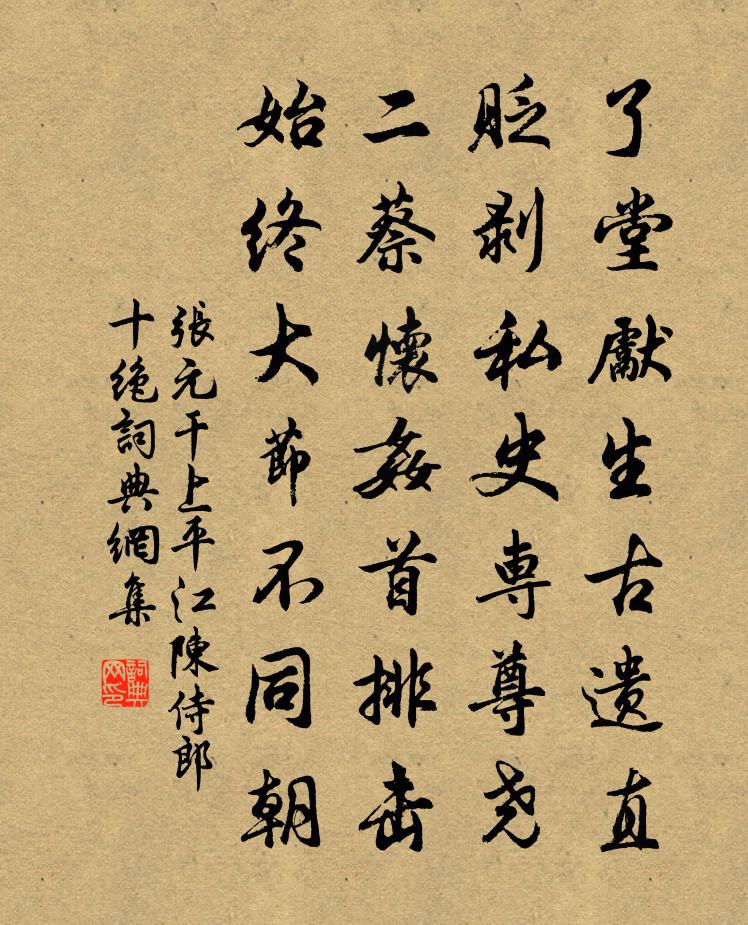 了堂獻生古遗直
貶剝私史専尊尧
二蔡懷姦首排击
始終大節不同朝
張元干上平江陳侍郎
十絶詞典網集
詞典网印